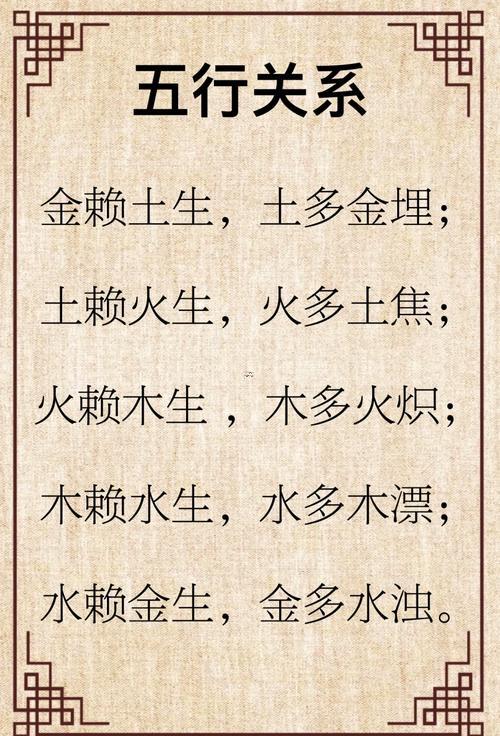 五行关系
金赖土生，土多金埋；
土赖火生，火多土焦；
火赖木生，木多火炽；
木赖水生，水多木漂；
水赖金生，金多水浊。